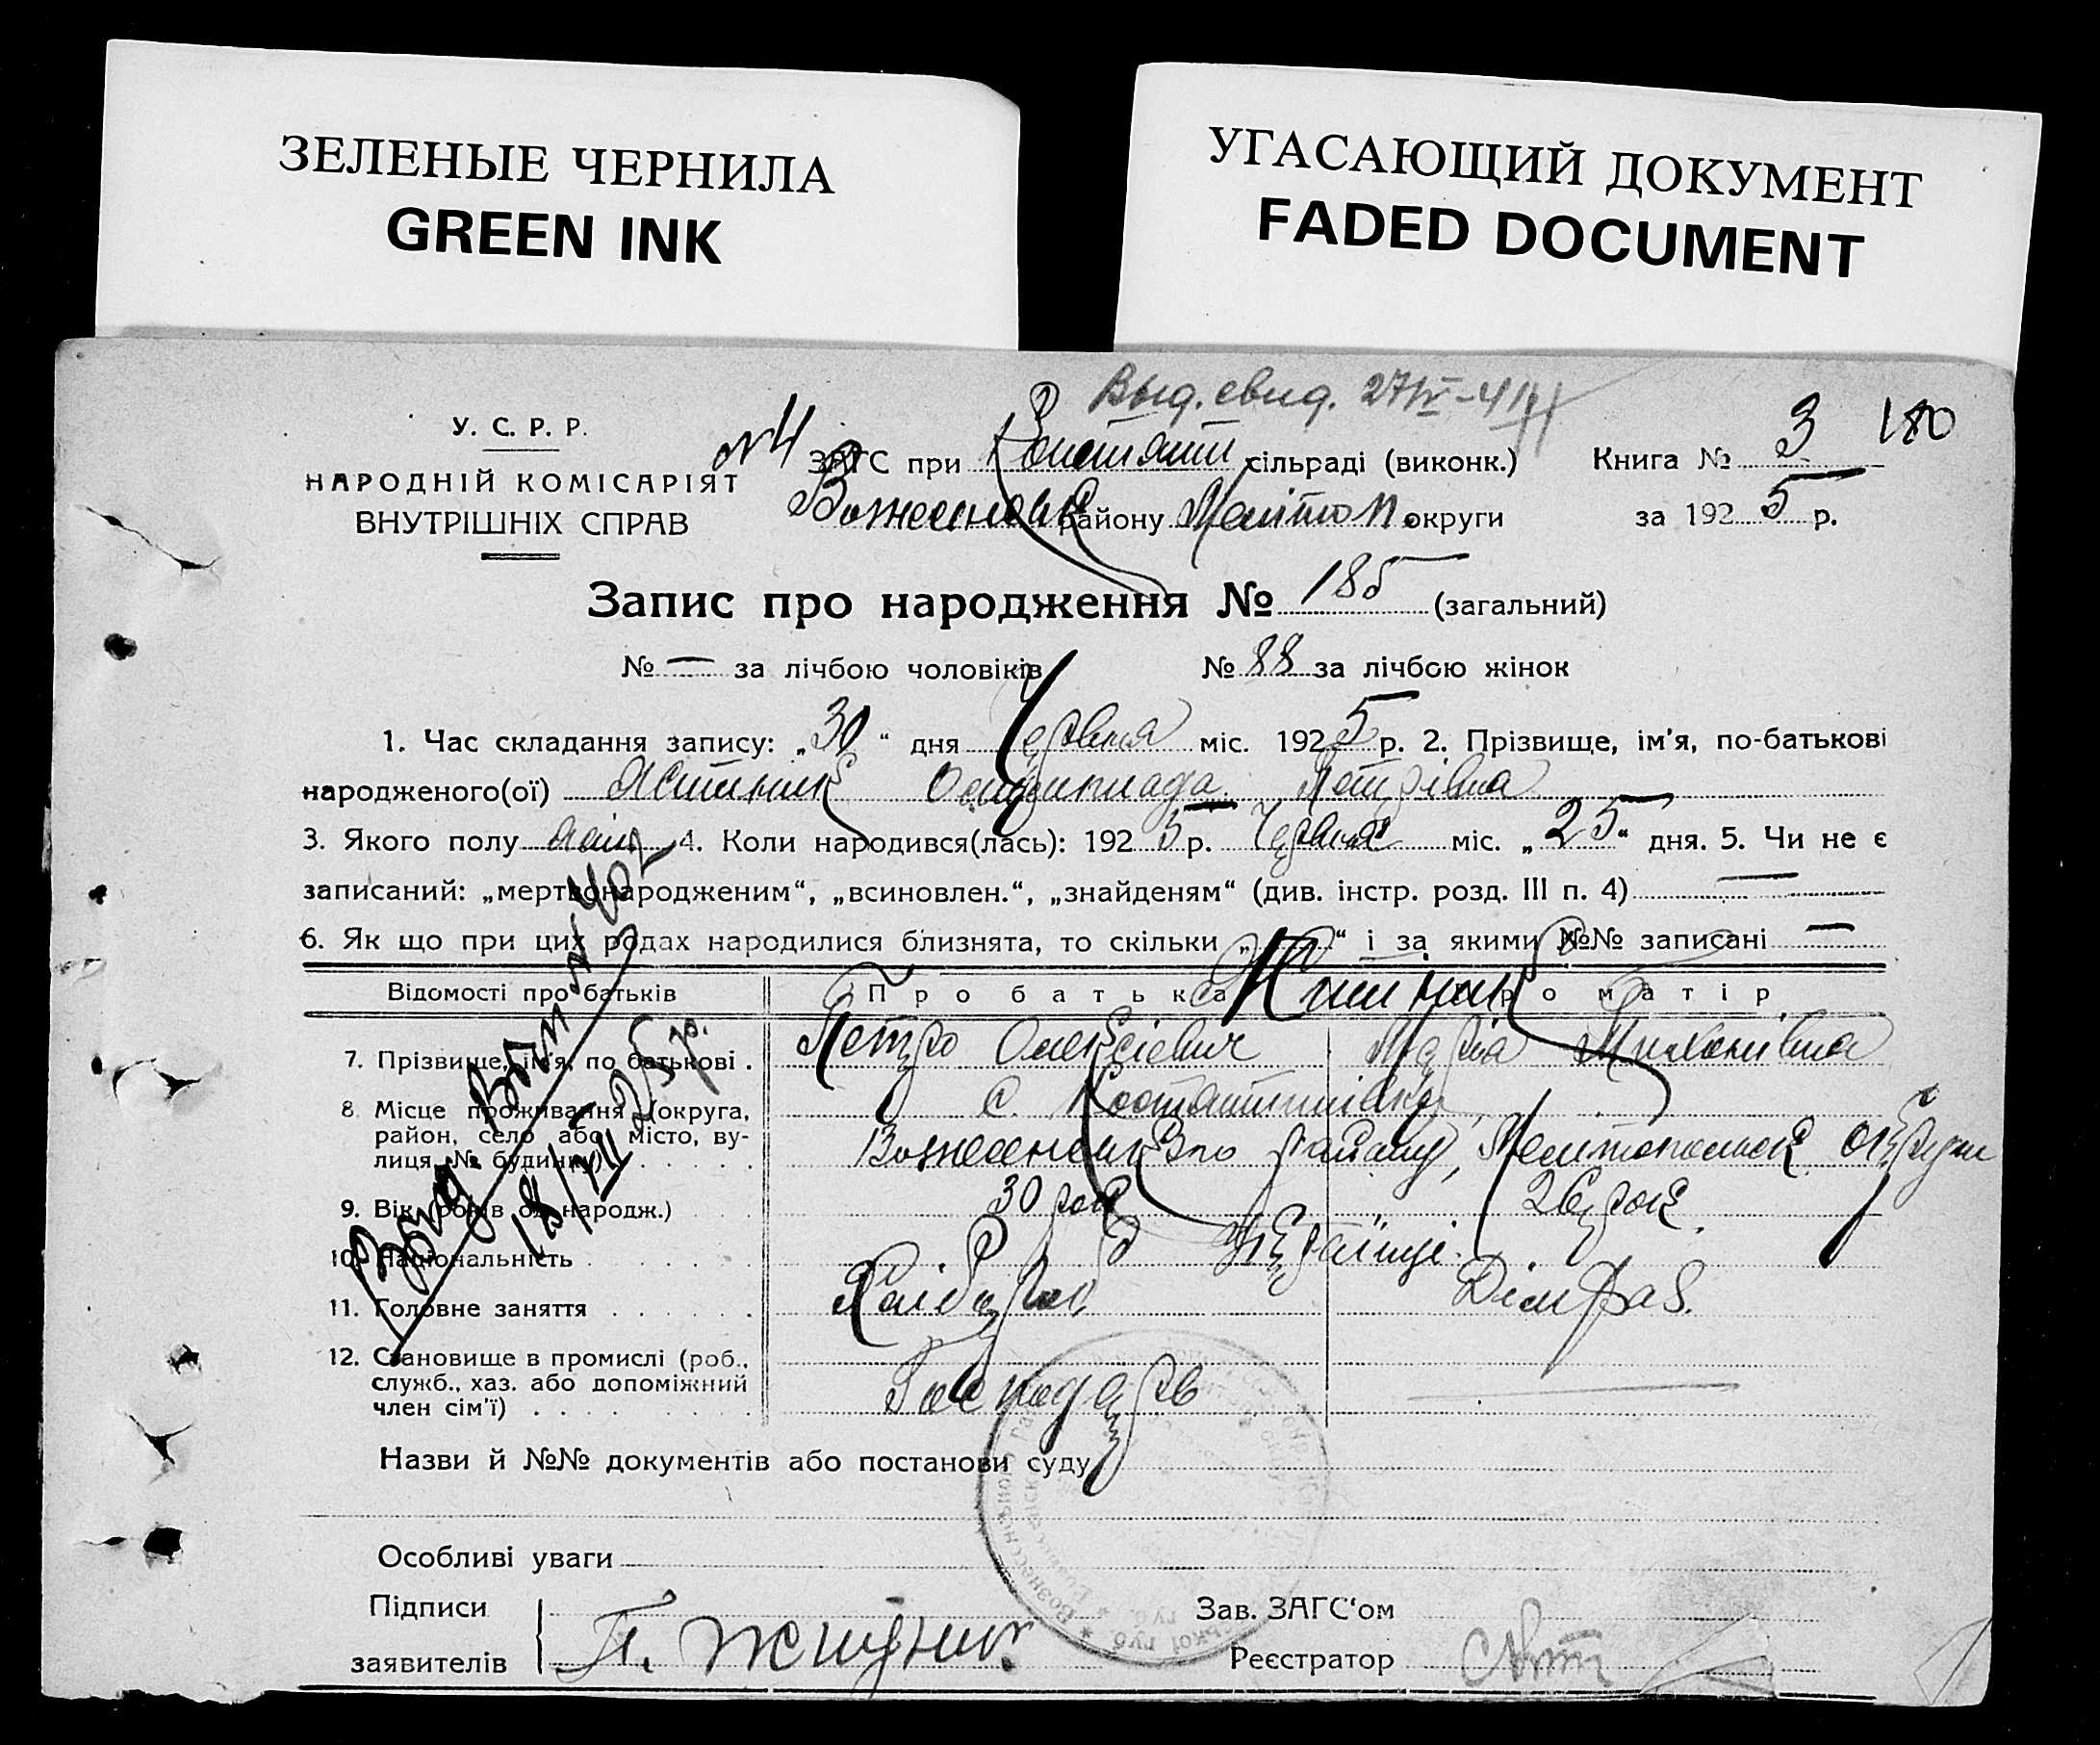 ЗЕЛЕНЫЕ ЧЕРНИЛА
GREEN INK
УГАСАЮЩИЙ ДОКУМЕНТ
FADED DOCUMENT
Выд. свид. 27/IV-41
У. С. Р. Р.
НАРОДНІЙ КОМІСАРІЯТ
ВНУТРІШНІХ СПРАВ
№4 ЗАГС при Констант сільраді (виконк.)
району Мелітоп. округи
Книга № 3 180
за 1925 р.
Запис про народження № 185 (загальний)
№ — за лічбою чоловіків № 88 за лічбою жінок
1. Час складання запису: „30“ дня Червня міс. 1925 р. 2. Прізвище, ім'я, по-батькові
народженого(ої) Олімпиада Петрівна
3. Якого полу жін 4. Коли народився(лась): 1925 р. Червня міс. „25“ дня. 5. Чи не є
записаний: „мертвонародженим“, „всиновлен.“, „знайденям“ (див. інстр. розд. III п. 4) —
6. Як що при цих родах народилися близнята, то скільки „ “ і за якими №№ записані —
Відомості про батьків Про батька Про матір
7. Прізвище, ім'я, по батькові . Петро Олексієвич Марія
8. Місце проживання (округа, район, село або місто, вулиця, № будинку) с. Костантинівка
району, Мелітопольск округи
9. Вік (років од народж.) 30 рок 26 рок
10. Національність Українці
11. Головне заняття Хлібороб
12. Становище в промислі (роб., служб., хаз. або допоміжний член сім'ї) Господарь
Назви й №№ документів або постанови суду
Особливі уваги
Підписи
заявителів П.
Зав. ЗАГС'ом
Реєстратор
Вид. Вып № 402
18/VII-25 р.